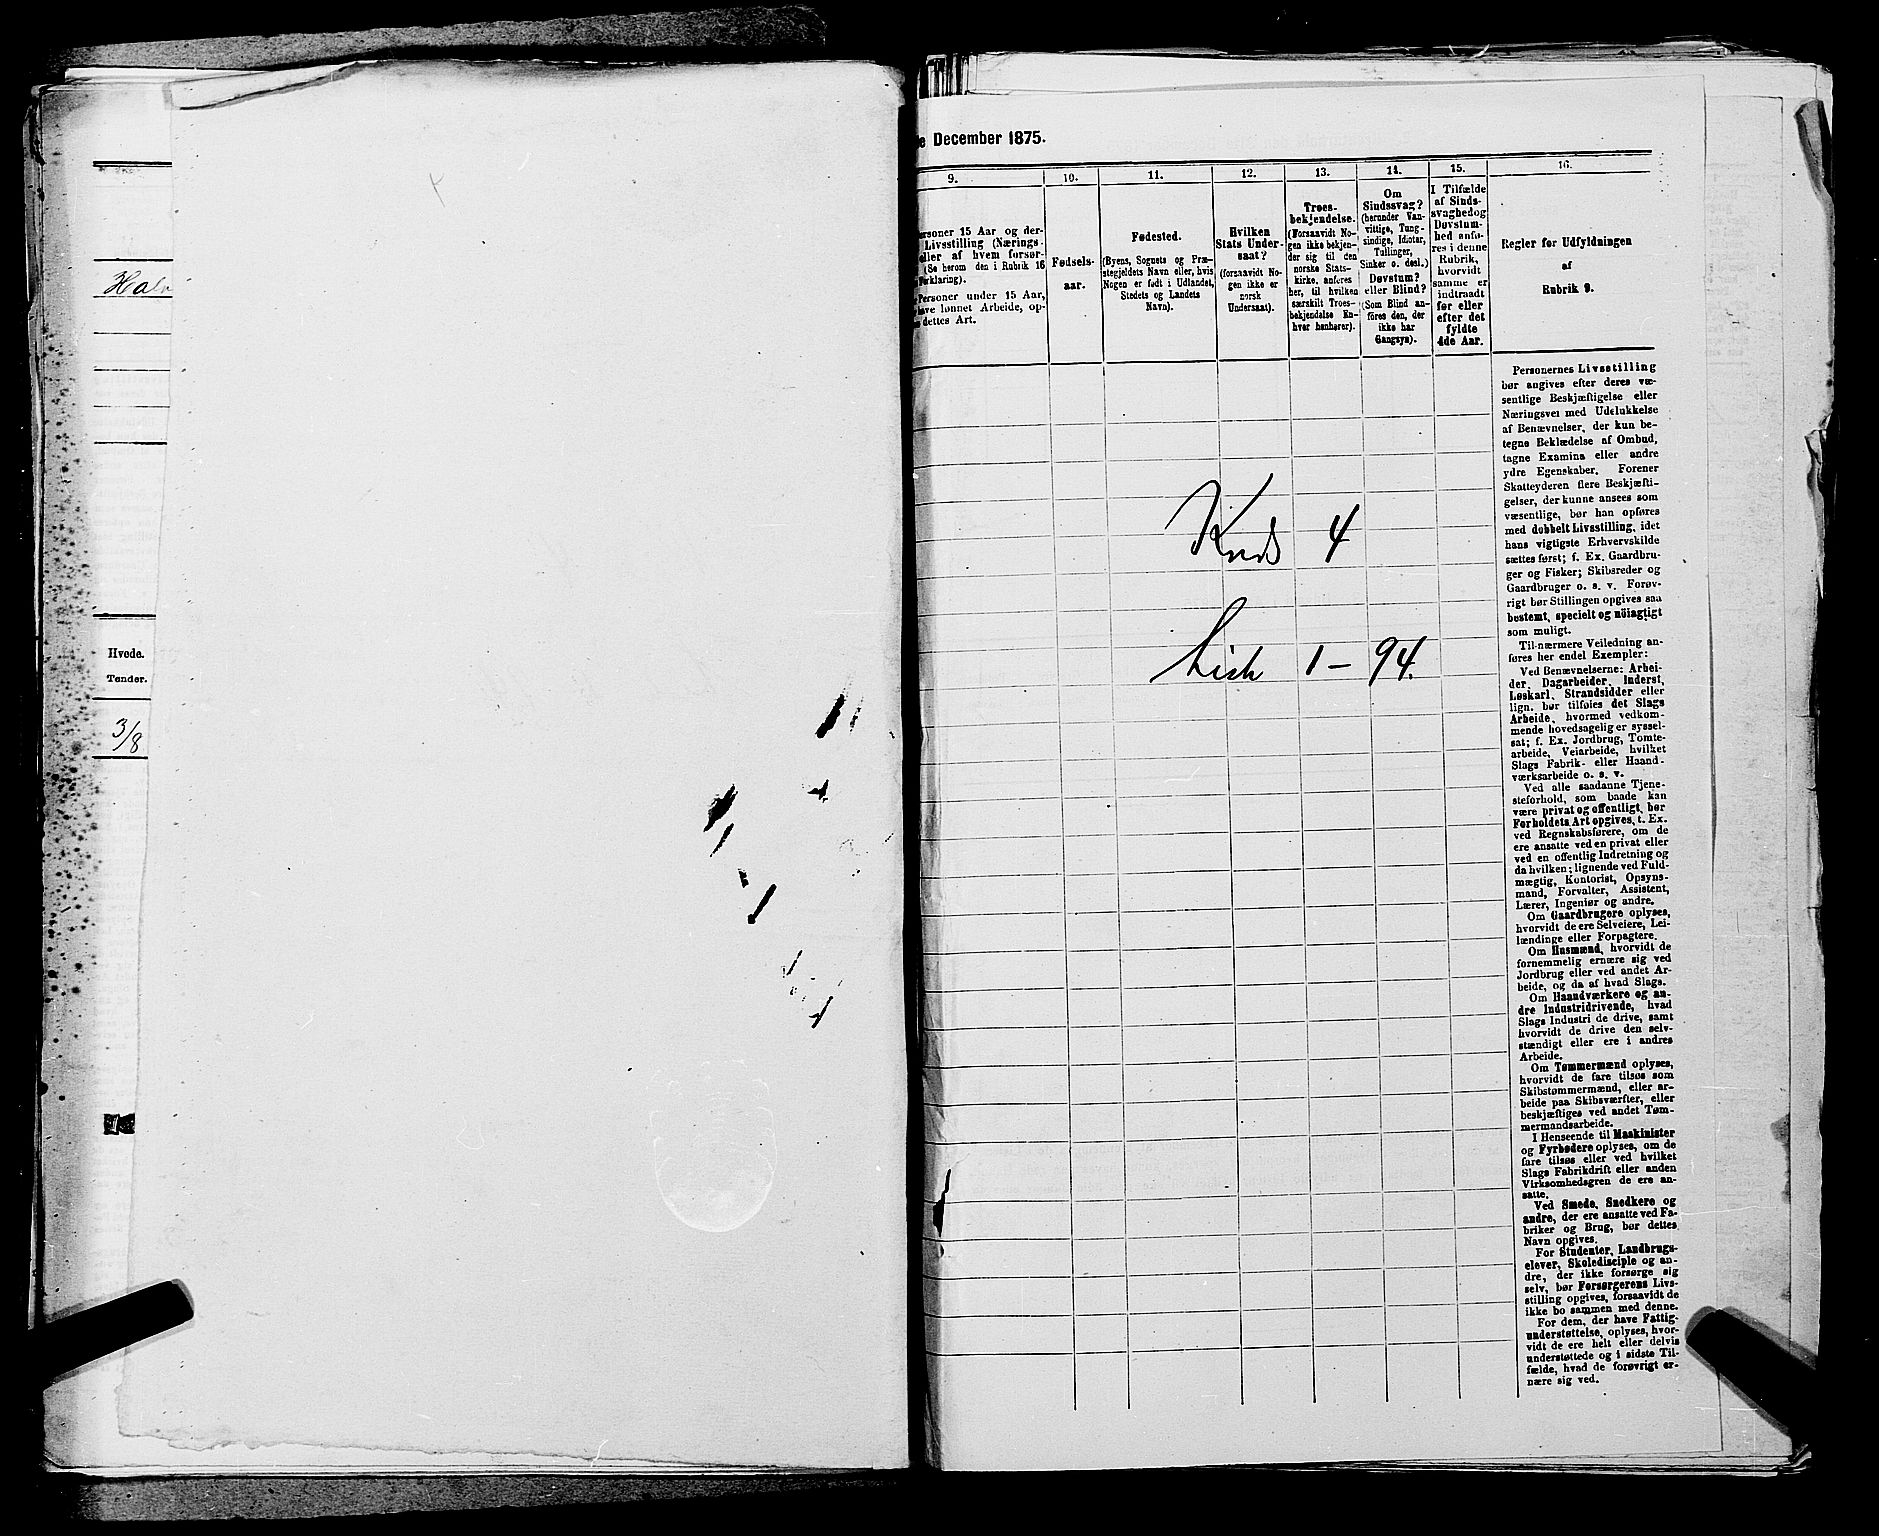 Hvede.
Tønder.
3/8
December 1875.
9.
10.
11.
12.
13.
14.
15.
16.
ersoner 15 Aar og der-
Livsstilling (Nærings-
eller af hvem forsør-
(Se herom den i Rubrik 16
Forklaring).
Personer under 15 Aar,
have lønnet Arbeide, op-
dettes Art.
Fødsels-
aar.
Fødested.
(Byens, Sognets og Præ-
stegjeldets Navn eller, hvis
Nogen er født i Udlandet,
Stedets og Landets
Navn).
Hvilken
Stats Under-
saat?
(forsaavidt No-
gen ikke er
norsk
Undersaat).
Troes-
bekjendelse.
(Forsaavidt No-
gen ikke bekjen-
der sig til den
norske Stats-
kirke, anføres
her, til hvilken
særskilt Troes-
bekjendelse En-
hver henhører).
Om
Sindssvag?
(herunder Van-
vittige, Tung-
sindige, Idioter,
Tullinger,
Sinker o. desl.)
Døvstum?
eller Blind?
(Som Blind an-
føres den, der
ikke har
Gangsyn).
I Tilfælde
af Sinds-
svaghed og
Døvstum-
hed anfø-
res i denne
Rubrik,
hvorvidt
samme er
indtraadt
før eller
efter det
fyldte
4de Aar.
Regler for Udfyldningen
af
Rubrik 9.
Knds 4
Liste 1 - 94.
Personernes Livsstilling
bør angives efter deres væ-
sentlige Beskjæftigelse eller
Næringsvei med Udelukkelse
af Benævnelser, der kun be-
tegne Beklædelse af Ombud,
tagne Examina eller andre
ydre Egenskaber. Forener
Skatteyderen flere Beskjæfti-
gelser, der kunne ansees som
væsentlige, bør han opføres
med dobbelt Livsstilling, idet
hans vigtigste Erhvervskilde
sættes først; f. Ex. Gaardbru-
ger og Fisker; Skibsreder og
Gaardbruger o. s. v. Forøv-
rigt bør Stillingen opgives saa
bestemt, specielt og nöiagtigt
som muligt.
Til nærmere Veiledning an-
føres her endel Exempler:
Ved Benævnelserne: Arbei-
der, Dagarbeider, Inderst,
Løskarl, Strandsidder eller
lign. bør tilføies det Slags
Arbeide, hvormed vedkom-
mende hovedsagelig er syssel-
sat; f. Ex. Jordbrug, Tomte-
arbeide, Veiarbeide, hvilket
Slags Fabrik- eller Haand-
værksarbeide o. s. v.
Ved alle saadanne Tjene-
steforhold, som baade kan
være privat og offentligt, bør
Forholdets Art opgives, t. Ex.
ved Regnskabsførere, om de
ere ansatte ved en privat eller
ved en offentlig Indretning og
da hvilken; lignende ved Fuld-
mægtig, Kontorist, Opsyns-
mand, Forvalter, Assistent,
Lærer, Ingeniør og andre.
Om Gaardbrugere oplyses,
hvorvidt de ere Selveiere, Lei-
lændinge eller Forpagtere.
Om Husmænd, hvorvidt de
fornemmelig ernære sig ved
Jordbrug eller ved andet Ar-
beide, og da af hvad Slags.
Om Haandværkere og an-
dre Industridrivende, hvad
Slags Industri de drive, samt
hvorvidt de drive den selv-
stændigt eller ere i andres
Arbeide.
Om Tømmermænd oplyses,
hvorvidt de fare tilsøs som
Skibstømmermænd, eller ar-
beide paa Skibsværfter, eller
beskjæftiges ved andet Tøm-
mermandsarbeide.
I Henseende til Maskinister
og Fyrbødere oplyses, om de
fare tilsøs eller ved hvilket
Slags Fabrikdrift eller anden
Virksomhedsgren de ere an-
satte.
Ved Smede, Snedkere og
andre, der ere ansatte ved Fa-
briker og Brug, bør dettes
Navn opgives.
For Studenter, Landbrugs-
elever, Skoledisciple og an-
dre, der ikke forsørge sig
selv, bør Forsørgerens Livs-
stilling opgives, forsaavidt de
ikke bo sammen med denne.
For dem, der have Fattig-
understøttelse, oplyses, hvor-
vidt de ere helt eller delvis
understøttede og i sidste Til-
fælde, hvad de forøvrigt er-
nære sig ved.